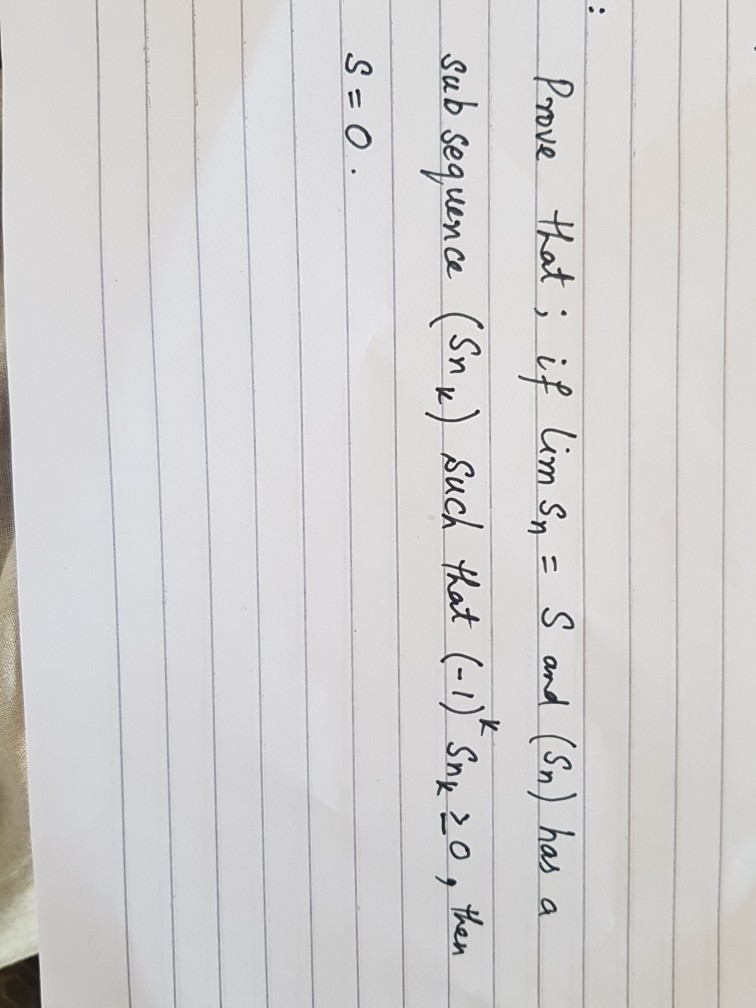 :
Prove that ; if lim Sn = S and (Sn) has a
sub sequence (Snk) such that (-1)^k Snk ≥ 0, then
S = 0.